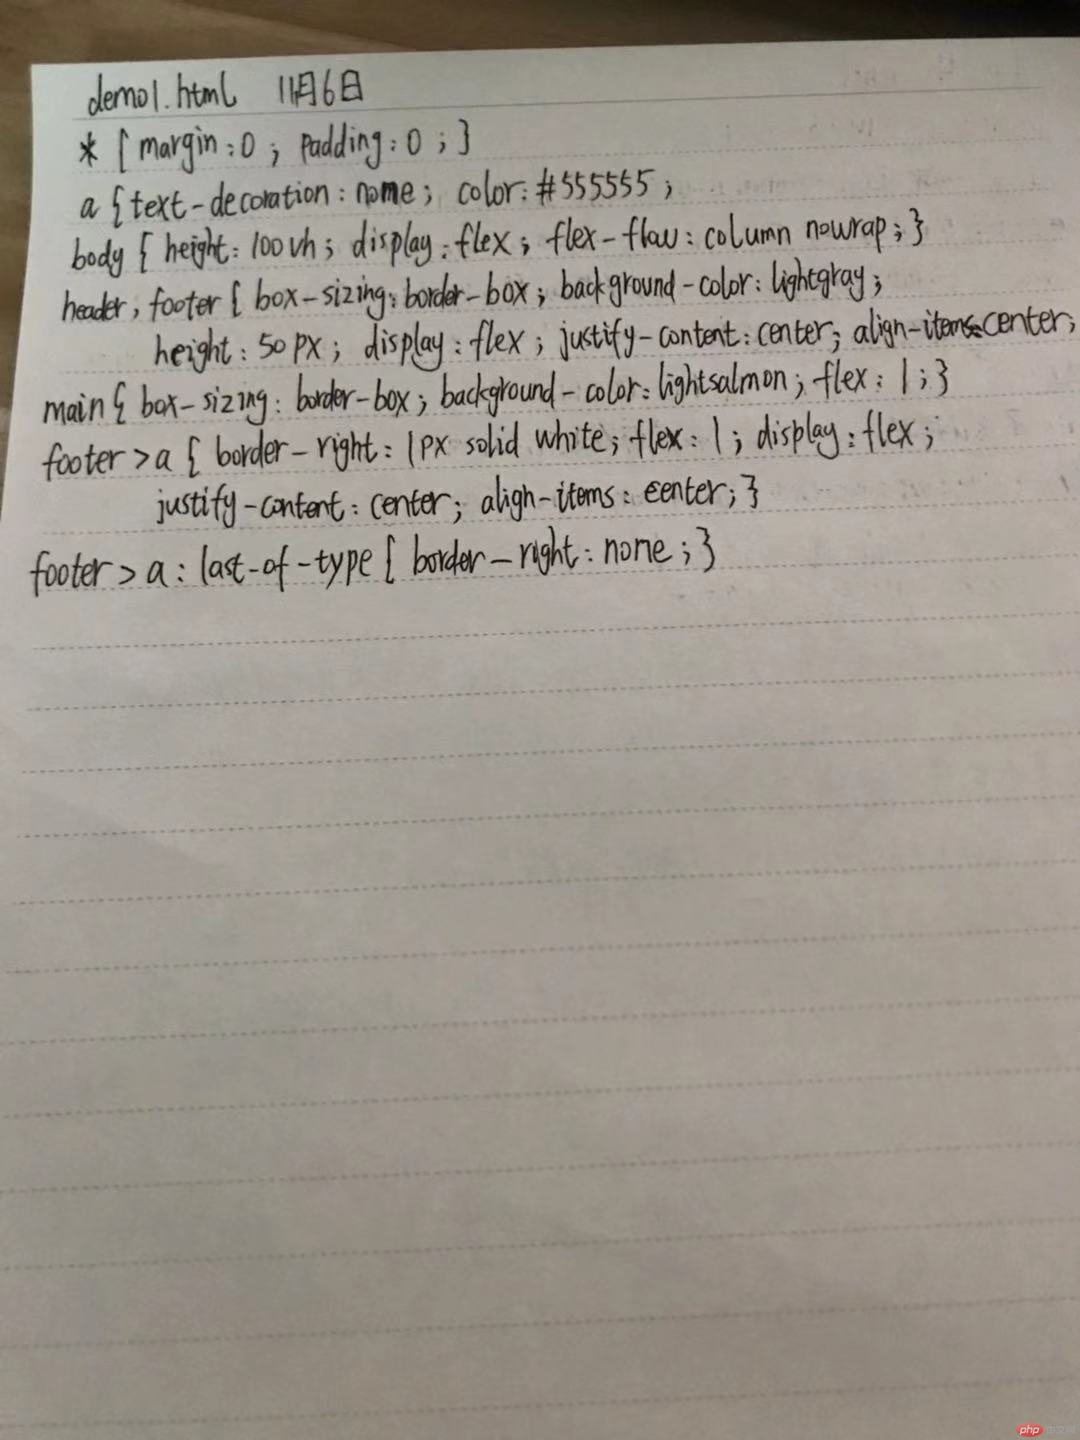 demo1.html 11月6日
* { margin:0 ; padding:0 ; }
a {text-decoration: nome; color:#555555;
body { height: 100vh; display:flex; flex-flow: column nowrap; }
header, footer { box-sizing: border-box; background-color: lightgray;
height: 50px; display: flex; justify-content: center; align-items:center;
main { box-sizing: border-box; background-color: lightsalmon; flex: 1; }
footer > a { border-right: 1px solid white; flex: 1; display: flex;
justify-content: center; align-items: center; }
footer > a : last-of-type { border-right: none; }
php